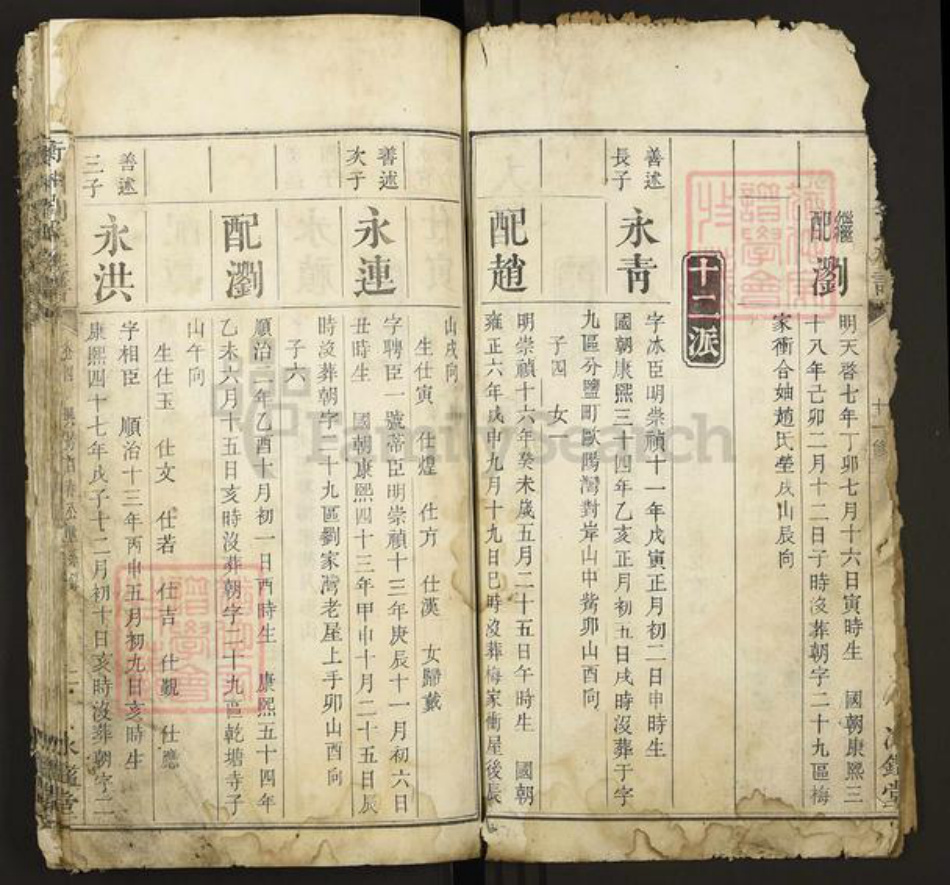 繼
配瀏
明天啓七年丁卯七月十六日寅時生 國朝康熙三
十八年己卯二月十二日子時沒葬朝字二十九區梅
家衝合妯趙氏塋戌山辰向
十二派
善述
長子
永青
字冰臣明崇禎十一年戊寅正月初二日申時生
國朝康熙三十四年乙亥正月初五日戌時沒葬于字
九區分鹽町歐陽灣對岸山中嘴卯山酉向
子四 女一
配趙
明崇禎十六年癸未歲五月二十五日午時生 國朝
雍正六年戊申九月十九日巳時沒葬梅家衝屋後辰
山戌向
生仕寅 仕煌 仕方 仕漢 女歸戴
善述
次子
永連
字聘臣一號帝臣明崇禎十三年庚辰十一月初六日
丑時生 國朝康熙四十三年甲申十月二十五日辰
時沒葬朝字二十九區劉家灣老屋上手卯山酉向
子六
配瀏
順治二年乙酉十月初一日酉時生 康熙五十四年
乙未六月十五日亥時沒葬朝字二十九區乾塘寺子
山午向
生仕玉 仕文 仕若 仕吉 仕覲 仕應
善述
三子
永洪
字相臣 順治十三年丙申五月初九日亥時生
康熙四十七年戊子十二月初十日亥時沒葬朝字二
FamilySearch